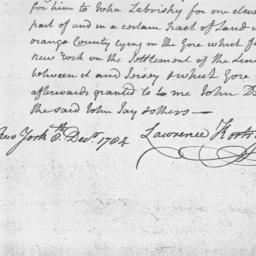 for him to John Lebrisky for one eleve
part of and in a certain Tract of Land i
orange County lying in the Gore which fe
New York on the Settlement of the Line
between it and Jersey & which Gore
afterwards granted to to me John D
the said John Jay & others —
New York 6th Decr. 1784 Lawrence Kort